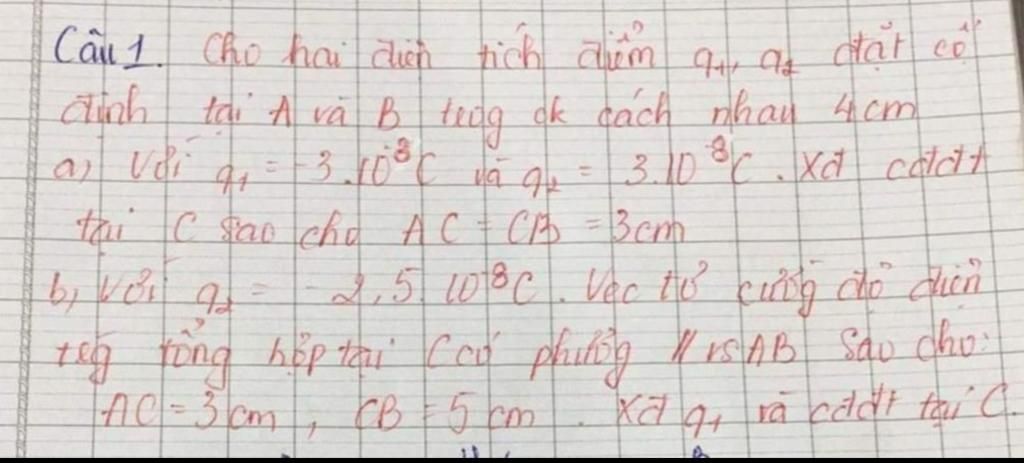 Câu 1. Cho hai điện tích điểm q₁, q₂ đặt cố
định tại A và B trog đk cách nhau 4cm
a, Với q₁ = -3.10⁻⁸C và q₂ = 3.10⁻⁸C. Xđ cđđt
tại C sao cho AC = CB = 3cm
b, Với q₂ = -2,5.10⁻⁸C. Véc tơ cường độ điện
trg tổng hợp tại C có phương // vs AB sao cho:
AC = 3cm, CB = 5cm. Xđ q₁ và cđđt tại C.